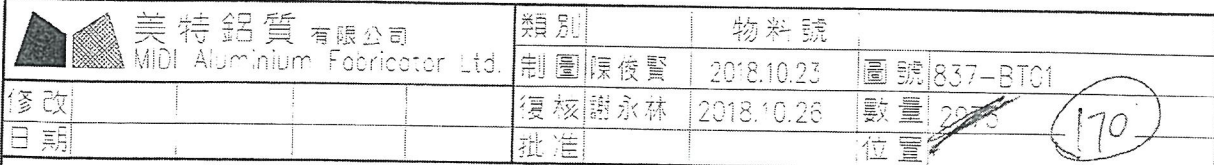 美特鋁質有限公司
MIDI Aluminium Fabricator Ltd.
類別 物料號
制圖 陳俊賢 2018.10.23 圖號 837-BT01
修改 復核 謝永林 2018.10.26 數量 2975 170
日期 批准 位置